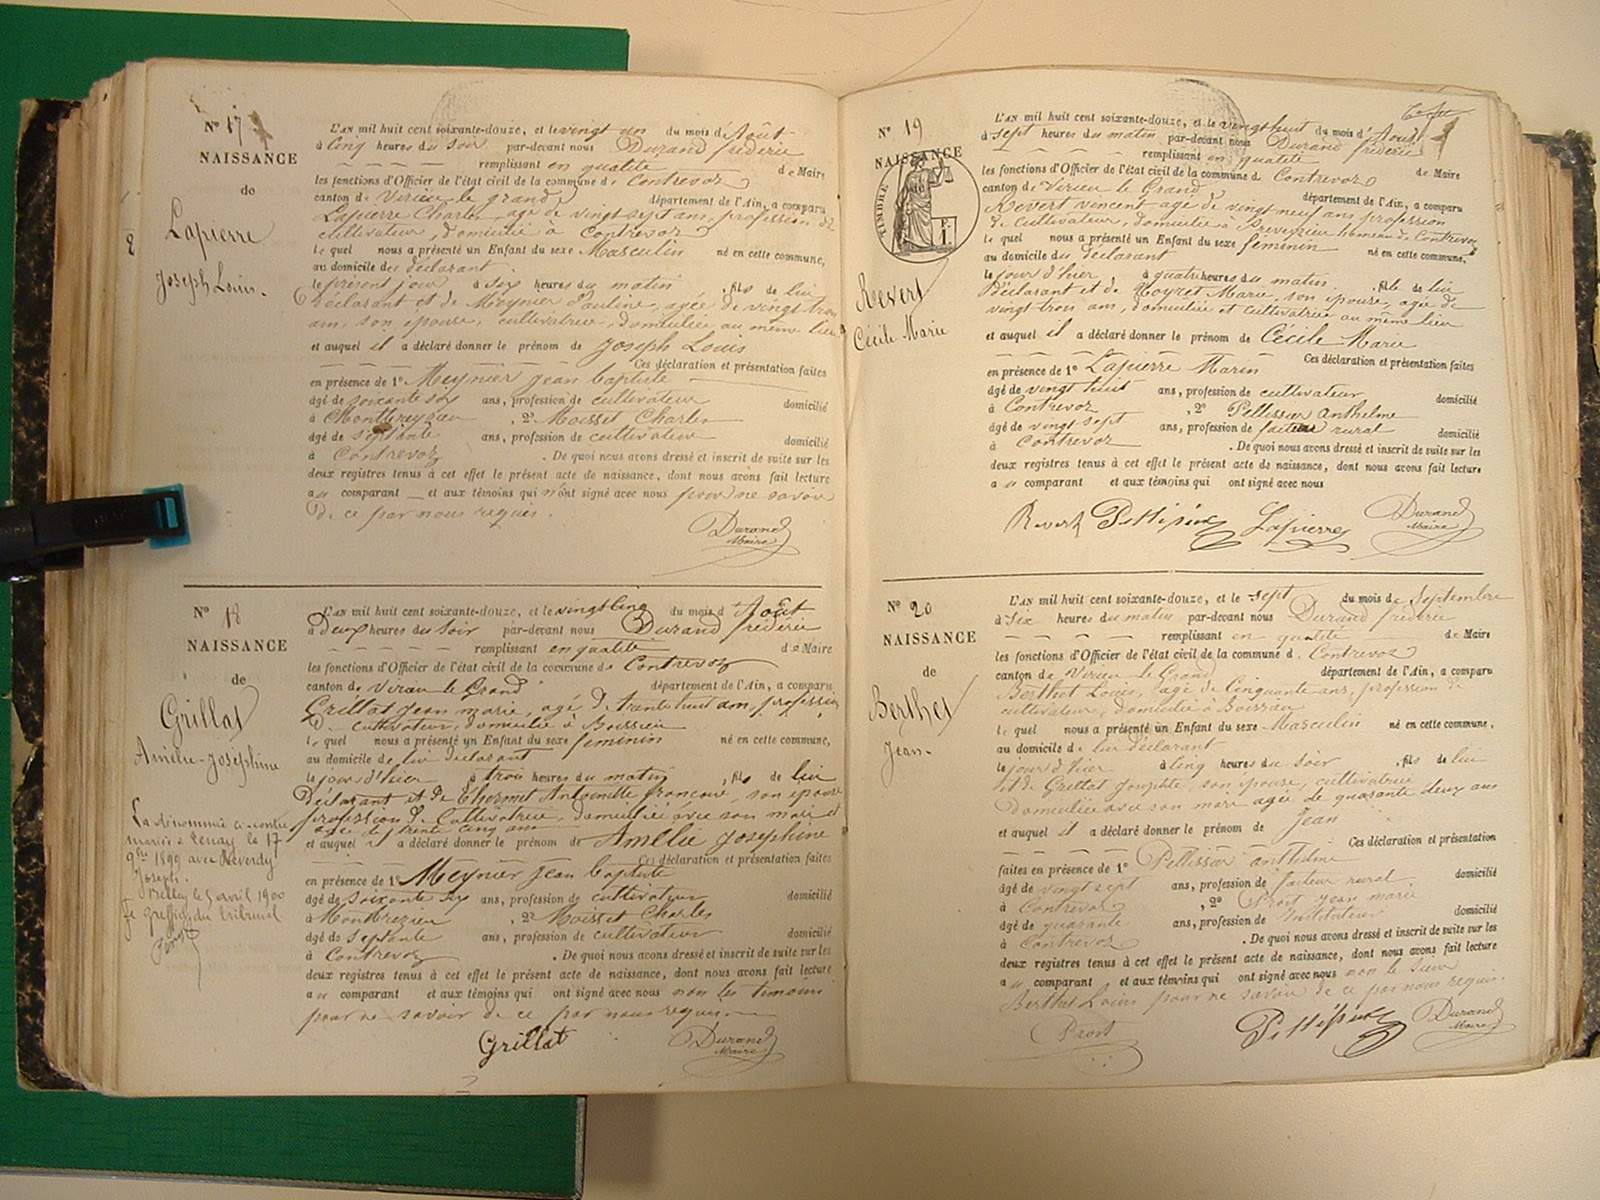 N° 17
NAISSANCE
de
Lapierre
Joseph Louis.
L'AN mil huit cent soixante-douze, et le vingt un du mois d'Août
à cinq heures du soir par-devant nous Durand frédéric
remplissant en qualité de Maire
les fonctions d'Officier de l'état civil de la commune de Contrevoz
canton de Virieu le grand département de l'Ain, a comparu
Lapierre Charles, agé de vingt sept ans, profession de
cultivateur, domicilié à Contrevoz
le quel nous a présenté un Enfant du sexe Masculin né en cette commune,
au domicile du déclarant.
le présent jour à six heures du matin, fils de lui
déclarant et de Meynier Pauline, agée de vingt trois
ans, son épouse, cultivatrice, domiciliée au même lieu
et auquel il a déclaré donner le prénom de Joseph Louis
Ces déclaration et présentation faites
en présence de 1° Meynier jean baptiste
âgé de soixante six ans, profession de cultivateur domicilié
à Montbreyzieu, 2° Moisset Charles
âgé de septante ans, profession de cultivateur domicilié
à Contrevoz. De quoi nous avons dressé et inscrit de suite sur les
deux registres tenus à cet effet le présent acte de naissance, dont nous avons fait lecture
au comparant et aux témoins qui n'ont signé avec nous pour ne savoir
de ce par nous requis.
Durand
Maire
N° 18
NAISSANCE
de
Grillat
Amélie-Joséphine
La dénommée ci contre
mariée à Tenay le 17
9bre 1899 avec Reverdy
Joseph.
Belley le 5 avril 1900
Le greffier du tribunal
L'AN mil huit cent soixante-douze, et le vingt cinq du mois d'Août
à Deux heures du Soir par-devant nous Durand frédéric
remplissant en qualité de Maire
les fonctions d'Officier de l'état civil de la commune de Contrevoz
canton de Virieu le Grand département de l'Ain, a comparu
Grillat Jean marie, agé de trente huit ans, profession
de cultivateur, domicilié à Boissieu
le quel nous a présenté un Enfant du sexe féminin né en cette commune,
au domicile de lui déclarant
le jour d'hier à trois heures du matin, fils de lui
Déclarant et de Thermet Antoinette françoise, son épouse
profession de Cultivatrice, domiciliée avec son mari et
agée de trente cinq ans
et auquel il a déclaré donner le prénom de Amélie Joséphine
Ces déclaration et présentation faites
en présence de 1° Meynier jean baptiste
âgé de soixante six ans, profession de cultivateur domicilié
à Montbrezieu, 2° Moisset Charles
âgé de septante ans, profession de cultivateur domicilié
à Contrevoz. De quoi nous avons dressé et inscrit de suite sur les
deux registres tenus à cet effet le présent acte de naissance, dont nous avons fait lecture
au comparant et aux témoins qui ont signé avec nous non les témoins
pour ne savoir de ce par nous requis.
Grillat Durand
Maire
N° 19
NAISSANCE
de
TIMBRE
F. 1
Revert
Cécile Marie
L'AN mil huit cent soixante-douze, et le vingt huit du mois d'Août
à sept heures du matin par-devant nous Durand frédéric
remplissant en qualité de Maire
les fonctions d'Officier de l'état civil de la commune de Contrevoz
canton de Virieu le Grand département de l'Ain, a comparu
Revert vincent agé de vingt neuf ans profession
de Cultivateur, domicilié à Preveyzieu hameau de Contrevoz
le quel nous a présenté un Enfant du sexe féminin né en cette commune,
au domicile du déclarant
le jour d'hier à quatre heures du matin, fille de lui
Déclarant et de Moyret Marie, son épouse, agée de
vingt trois ans, domiciliée et cultivatrice au même lieu
et auquel il a déclaré donner le prénom de Cécile Marie
Ces déclaration et présentation faites
en présence de 1° Lapierre Marin
âgé de vingt huit ans, profession de cultivateur domicilié
à Contrevoz, 2° Pellissier Anthelme
âgé de vingt-sept ans, profession de facteur rural domicilié
à Contrevoz. De quoi nous avons dressé et inscrit de suite sur les
deux registres tenus à cet effet le présent acte de naissance, dont nous avons fait lecture
au comparant et aux témoins qui ont signé avec nous
Revert Lapierre Durand
Maire
N° 20
NAISSANCE
de
Berthet
Jean.
L'AN mil huit cent soixante-douze, et le sept du mois de Septembre
à Six heures du matin par-devant nous Durand frédéric
remplissant en qualité de Maire
les fonctions d'Officier de l'état civil de la commune de Contrevoz
canton de Virieu le Grand département de l'Ain, a comparu
Berthet Louis, agé de Cinquante ans, profession de
cultivateur, domicilié à Boissieu
le quel nous a présenté un Enfant du sexe Masculin né en cette commune,
au domicile de lui déclarant
le jour d'hier à cinq heures du soir, fils de lui
et de Grillat Josephte, son épouse, cultivatrice
Domiciliée avec son mari agée de quarante deux ans
et auquel il a déclaré donner le prénom de Jean
Ces déclaration et présentation
faites en présence de 1° Pellissier anthelme
âgé de vingt sept ans, profession de facteur rural domicilié
à Contrevoz, 2° Prost jean marie
âgé de quarante ans, profession de Instituteur domicilié
à Contrevoz. De quoi nous avons dressé et inscrit de suite sur les
deux registres tenus à cet effet le présent acte de naissance, dont nous avons fait lecture
au comparant et aux témoins qui ont signé avec nous non le sieur
Berthet Louis pour ne savoir de ce par nous requis.
Prost Durand
Maire